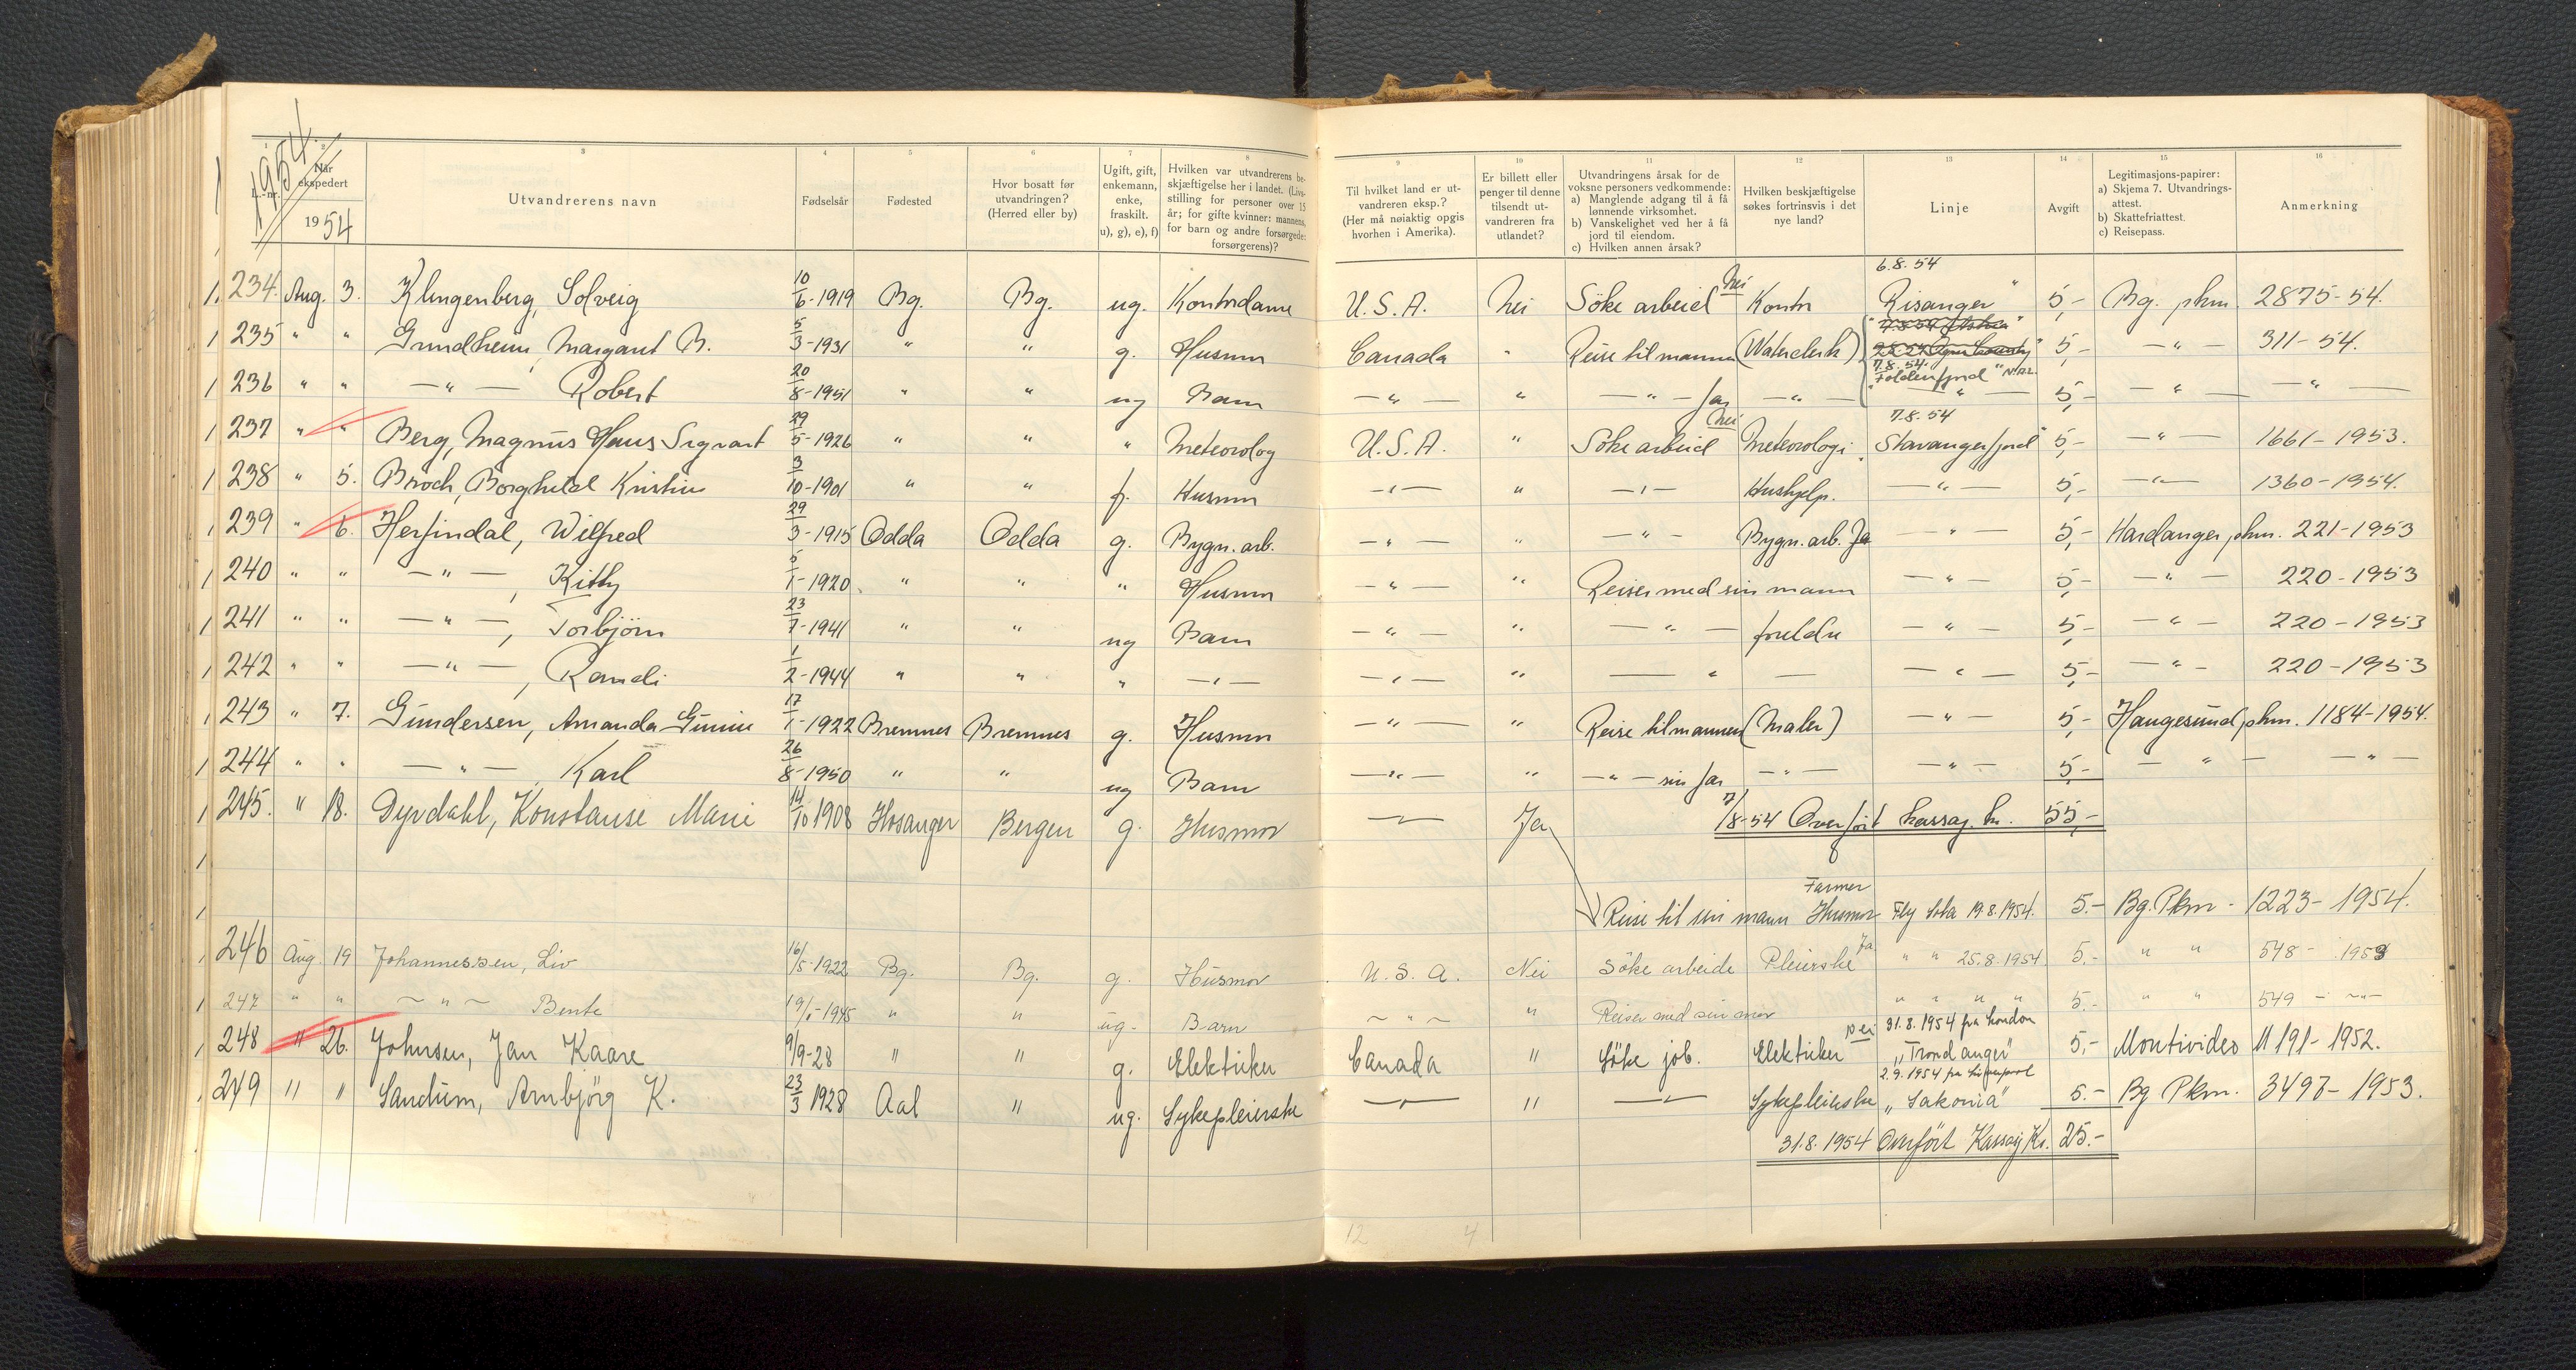 1954.
1 2 3 4 5 6 7 8 9 10 11 12 13 14 15 16
Når ekspedert 1954
Utvandrerens navn
Fødselsår
Fødested
Hvor bosatt før utvandringen? (Herred eller by)
Ugift, gift, enkemann, enke, fraskilt. u), g), e), f)
Hvilken var utvandrerens beskjæftigelse her i landet. (Livsstilling for personer over 15 år; for gifte kvinner: mannens, for barn og andre forsørgede: forsørgerens)?
Til hvilket land er utvandreren eksp.? (Her må nøiaktig opgis hvorhen i Amerika).
Er billett eller penger til denne tilsendt utvandreren fra utlandet?
Utvandringens årsak for de voksne personers vedkommende: a) Manglende adgang til å få lønnende virksomhet. b) Vanskelighet ved her å få jord til eiendom. c) Hvilken annen årsak?
Hvilken beskjæftigelse søkes fortrinsvis i det nye land?
Linje
Avgift
Legitimasjons-papirer: a) Skjema 7. Utvandringsattest. b) Skattefriattest. c) Reisepass.
Anmerkning
6.8.54
1. 234. Aug. 3. Klingenberg, Solveig 10/6-1919 Bg. Bg. ug. Kontordame U.S.A. Nei Söke arbeid Nei Kontor "Risanger" 5,- Bg. pkm 2875-54.
1 235 " " Grundheim, Margant B. 5/3-1931 " " g. Husmor Canada " Reise til mannen (Waterclerk) 5,- -"- 311-54.
7.8.54. "Foldenfjord" N.A.L.
1 236 " " -"- Robert 20/8-1951 " " ug Barn -"- " -"- far -"- -"- 5,- -"- -"-
7.8.54
1 237 " " Berg, Magnus Hans Sigvart 29/5-1926 " " " Meteorolog U.S.A. " Söke arbeid Nei Meteorologi "Stavangerfjord" 5,- -"- 1661-1953.
1 238 " 5. Broch, Borghild Kristine 3/10-1901 " " f. Husmor -"- " -"- Hushjelp. -"- 5,- -"- 1360-1954.
1 239 " 6. Herfindal, Wilfred 29/3-1915 Odda Odda g. Bygn. arb. -"- " -"- Bygn. arb. Ja -"- 5,- Hardanger pkm. 221-1953
1 240 " " -"-, Kitty 5/1-1920 " " " Husmor -"- " Reiser med sin mann -"- 5,- -"- 220-1953
1 241 " " -"-, Torbjörn 23/7-1941 " " ug Barn -"- " -"- foreldre -"- 5,- -"- 220-1953
1 242 " " -"-, Randi 1/2-1944 " " " -"- -"- " -"- -"- 5,- -"- 220-1953
1 243 " 7. Gundersen, Amanda Gunine 17/1-1922 Bremnes Bremnes g. Husmor -"- " Reise til mannen (Maler) -"- 5,- Haugesund pkm. 1184-1954.
1 244 " " -"-, Karl 26/8-1950 " " ug Barn -"- " -"- sin far -"- -"- 5,- -"- -"-
1 245. " 18. Dyrdahl, Konstanse Marie 14/10 1908 Hosanger Bergen g. Husmor -"- Ja
7/8-54 Overfört kassaj. kr. 55,-
1
Farmer
1 Reise til sin mann Husmor Fly Sola 19.8.1954. 5.- Bg. Pkm - 1223-1954.
1 246 Aug. 19 Johannessen, Liv 16/5-1922 Bg. Bg. g. Husmor U.S.A. Nei Söke arbeide Pleierske Ja " " 25.8.1954 5.- " " 548-1953
1 247 " " ~"~ Bente 19/1-1945 " " ug. Barn ~"~ " Reiser med sin mor " " " " 5.- " " 549 - ~"~
31.8.1954 fra London
1 248 " 26. Johnsen, Jan Kaare 9/9-28 " " g. Elektriker Canada " Söke job. Elektriker Nei "Trondanger" 5,- Montivideo M 191-1952.
2.9.1954 fra Liverpool
1 249 " " Sandum, Arnbjörg K. 23/3 1928 Aal " ug. Sykepleierske -"- " -"- Sykepleierske "Saxonia" 5.- Bg Pkm. 3497-1953.
31.8.1954 Overfört Kassaj Kr. 25.-
12 4